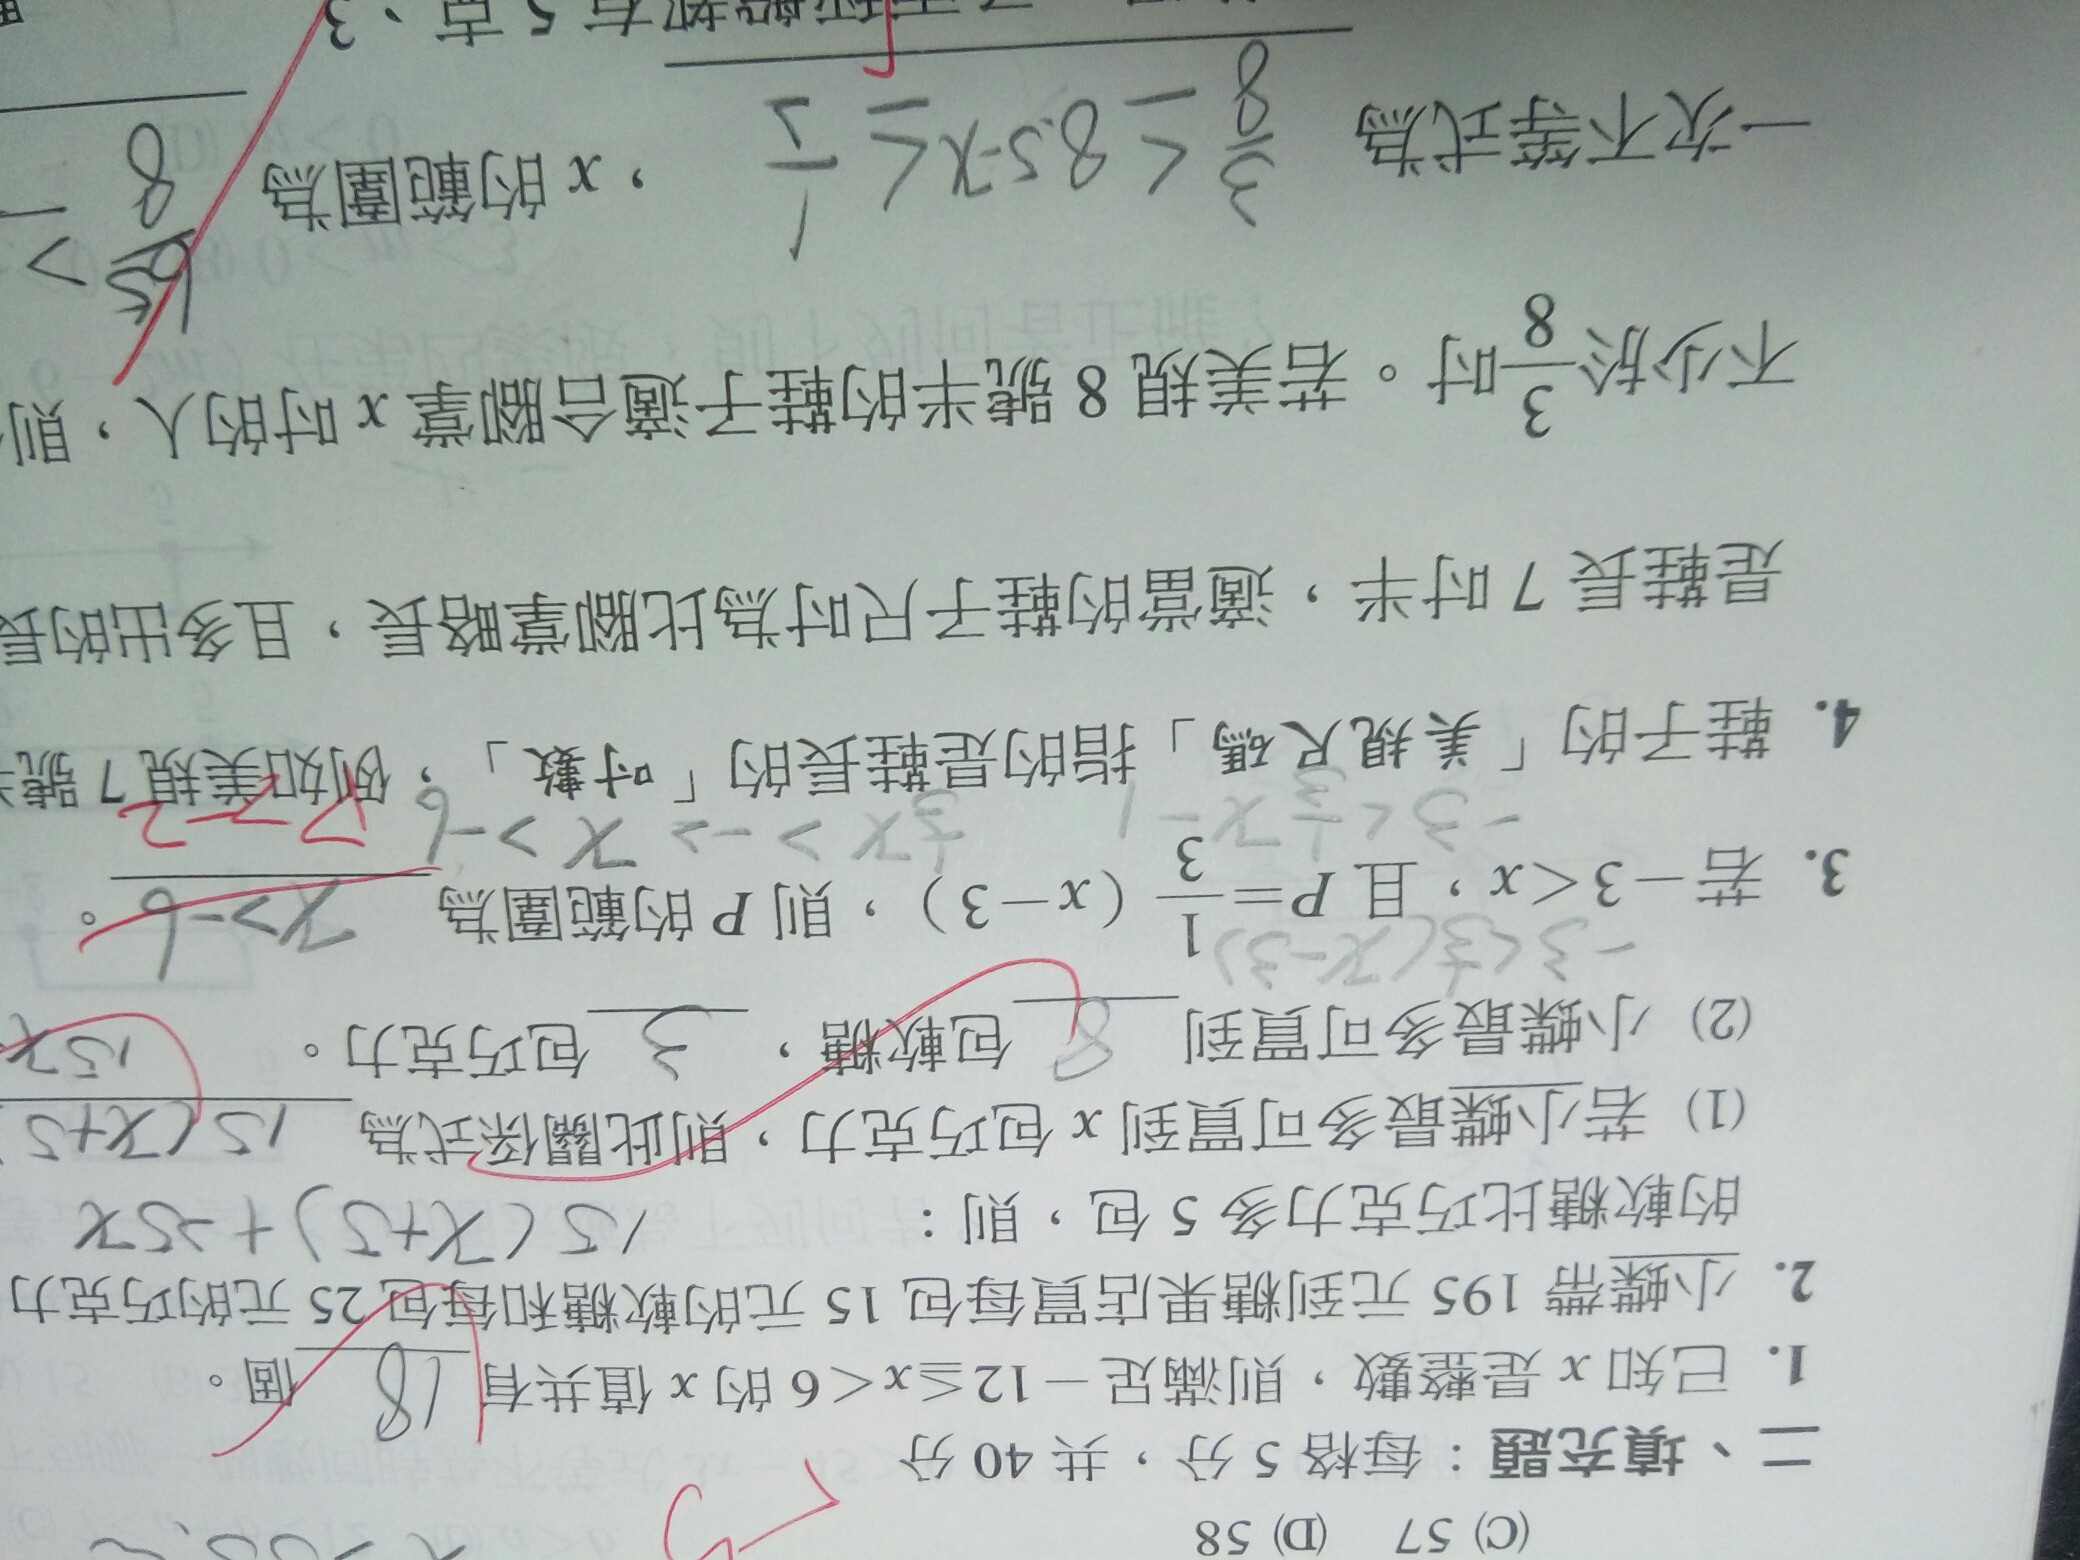 (C) 57 (D) 58
二、填充題：每格 5 分，共 40 分
1. 已知 x 是整數，則滿足－12≦x＜6 的 x 值共有 18 個。
2. 小蝶帶 195 元到糖果店買每包 15 元的軟糖和每包 25 元的巧克力
的軟糖比巧克力多 5 包，則：
15(x+5)+25x
(1) 若小蝶最多可買到 x 包巧克力，則此關係式為 15(x+5)
15x
(2) 小蝶最多可買到 8 包軟糖， 3 包巧克力。
-3<1/3(x-3)
3. 若－3＜x，且 P＝1/3（x－3），則 P 的範圍為 x>-6 。
-3<1/3x-1 1/3x>-2 x>-6
P>-2
4. 鞋子的「美規尺碼」指的是鞋長的「吋數」，例如美規 7 號
是鞋長 7 吋半，適當的鞋子尺吋為比腳掌略長，且多出的長
不少於3/8吋。若美規 8 號半的鞋子適合腳掌 x 吋的人，則
一次不等式為 3/8≤8.5-x≤1/2 ，x 的範圍為 65/8 >
5 克、3